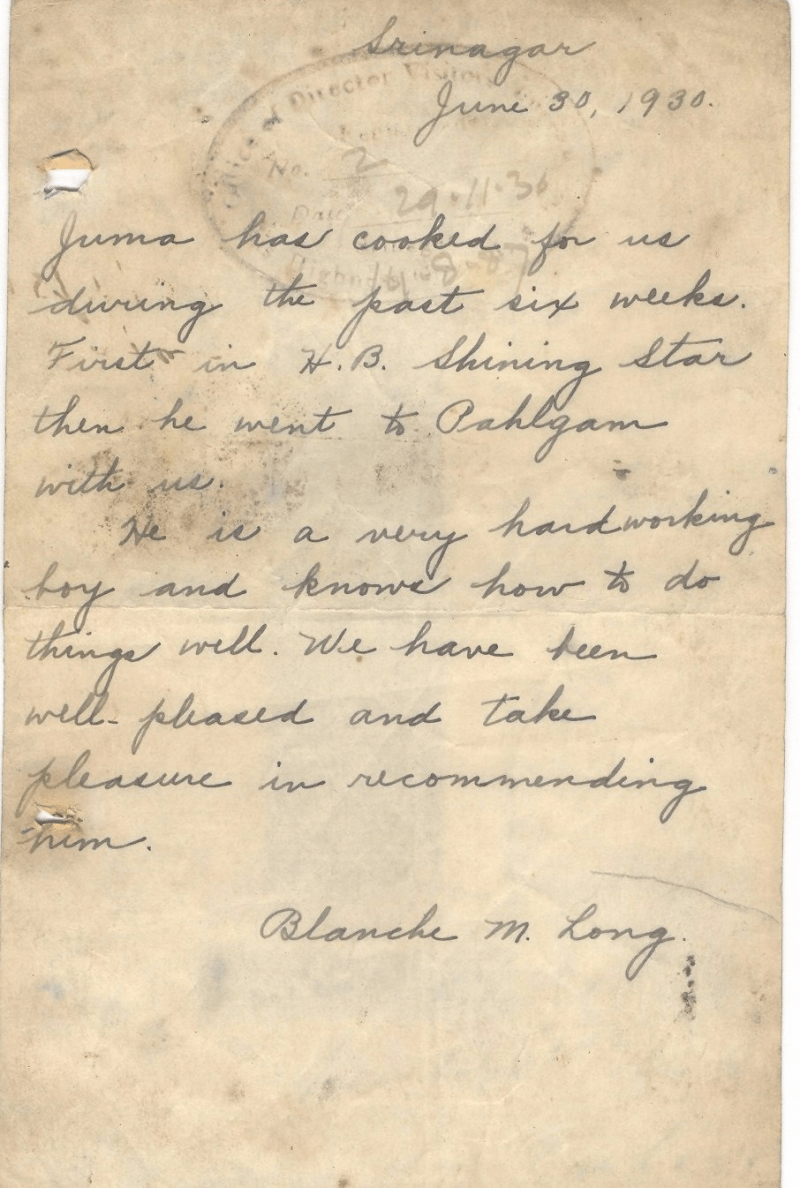 Srinagar
Office of Director Visitors
June 30, 1930.
No. 2
Date 29.11.30
Juma has cooked for us
during the past six weeks.
First in H.B. Shining Star
then he went to Pahlgam
with us.
He is a very hardworking
boy and knows how to do
things well. We have been
well-pleased and take
pleasure in recommending
him.
Blanche M. Long.